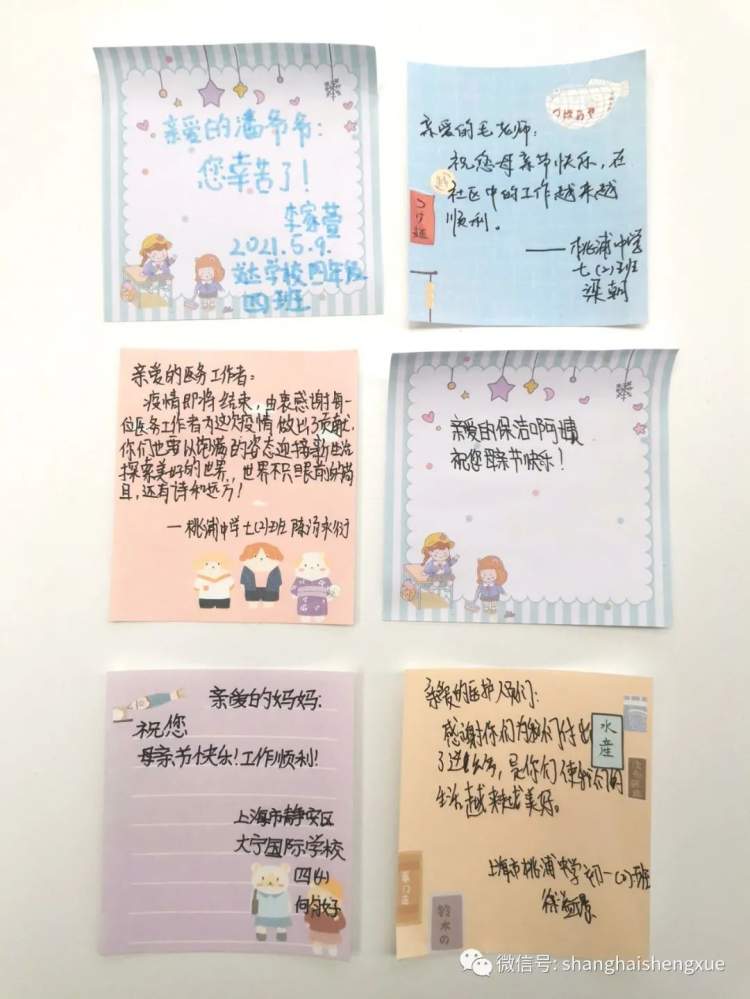 亲爱的潘爷爷：
您幸苦了！
李家萱
2021.5.9.
达学校四年级
四班
亲爱的毛老师：
祝您母亲节快乐，在
社区中的工作越来越
顺利。
——桃浦中学
七(2)班
梁朝
亲爱的医务工作者：
疫情即将结束，由衷感谢每一
位医务工作者为这次疫情做出了贡献，
你们也要以饱满的姿态迎接新生活
探索美好的世界，世界不只眼前的苟
且，还有诗和远方！
—桃浦中学七(2)班 陈汤
亲爱的保洁阿姨
祝您母亲节快乐！
亲爱的妈妈：
祝您
母亲节快乐！工作顺利！
上海市静安区
大宁国际学校
四(4)
何好
亲爱的医护人员们：
感谢你们为我们付出
了这么多，是你们使我们的
生活越来越美好。
上海市桃浦中学初一(2)班
徐
水産
鈴木の
微信号: shanghaishengxue